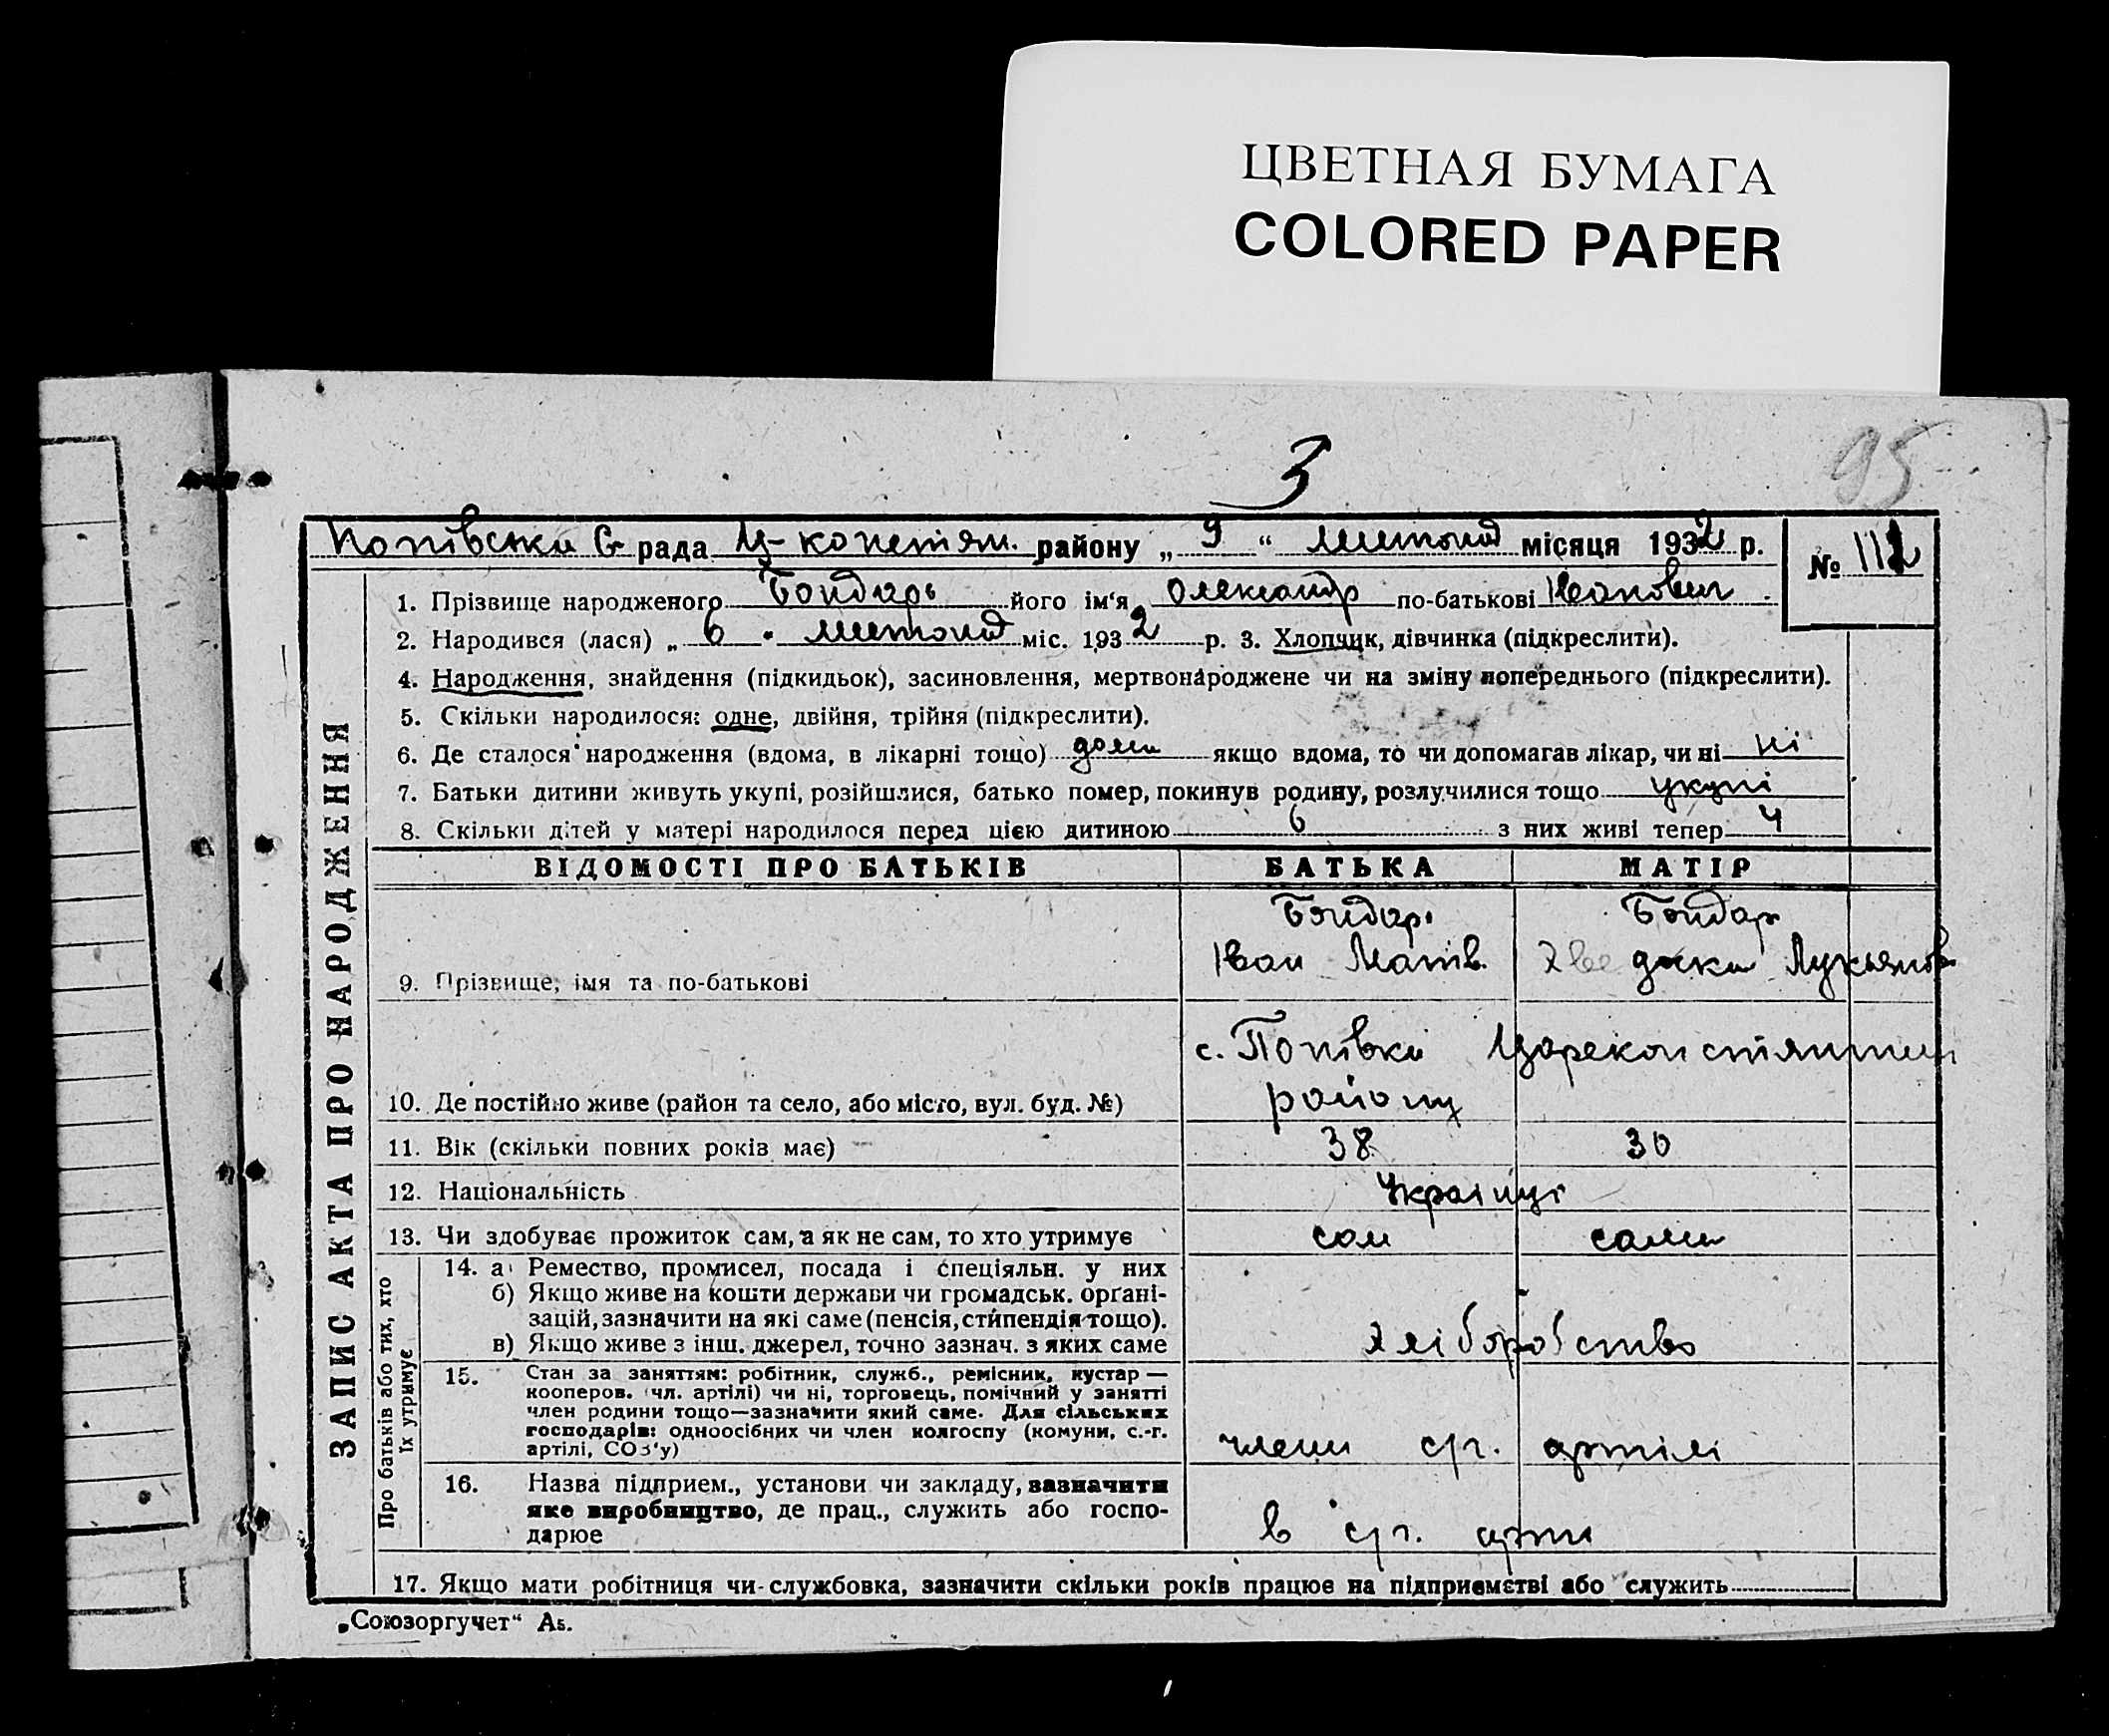 ЦВЕТНАЯ БУМАГА
COLORED PAPER
95
3
Попівська С рада Ц-констян. району „ 9 “ листопад місяця 1932 р. № 112
1. Прізвище народженого Бондарь його ім‘я Олександр по-батькові Іванович
2. Народився (лася) „ 6 " листопад міс. 1932 р. 3. Хлопчик, дівчинка (підкреслити).
4. Народження, знайдення (підкидьок), засиновлення, мертвонароджене чи на зміну попереднього (підкреслити).
5. Скільки народилося: одне, двійня, трійня (підкреслити).
6. Де сталося народження (вдома, в лікарні тощо) дома якщо вдома, то чи допомагав лікар, чи ні ні
7. Батьки дитини живуть укупі, розійшлися, батько помер, покинув родину, розлучилися тощо укупі
8. Скільки дітей у матері народилося перед цією дитиною 6 з них живі тепер 4
ВІДОМОСТІ ПРО БАТЬКІВ БАТЬКА МАТІР
Бондарь Бондар
9. Прізвище, імя та по-батькові Іван Матів. Хведоска Лукьянов
с. Попівка Царекон стянтин
10. Де постійно живе (район та село, або місто, вул. буд. №) району
11. Вік (скільки повних років має) 38 30
12. Національність Українці
13. Чи здобуває прожиток сам, а як не сам, то хто утримує сам сама
14. а) Ремество, промисел, посада і спеціяльн. у них
б) Якщо живе на кошти держави чи громадськ. орґані-
зацій, зазначити на які саме (пенсія, стипендія тощо).
в) Якщо живе з інш. джерел, точно зазнач. з яких саме хліборобство
15. Стан за заняттям: робітник, служб., ремісник, кустар —
кооперов. (чл. артілі) чи ні, торговець, помічний у занятті
член родини тощо—зазначити який саме. Для сільських
господарів: одноосібних чи член колгоспу (комуни, с.-г.
артілі, СОЗ'у) члени с/г. артілі
16. Назва підприєм., установи чи закладу, зазначити
яке виробництво, де прац., служить або госпо-
дарює в с/г. арти
17. Якщо мати робітниця чи-службовка, зазначити скільки років працює на підприємстві або служить
ЗАПИС АКТА ПРО НАРОДЖЕННЯ
Про батьків або тих, хто
їх утримує
„Союзоргучет“ А5.